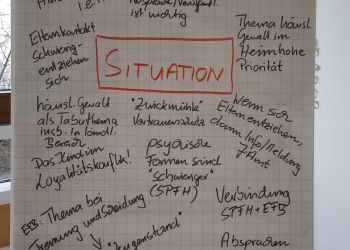 i.E.
Absprache/
ist wichtig
Elternkontakt
schwierig -
entziehen
sich
Thema häusl.
Gewalt im
hohe
Priorität
SITUATION
häusl. Gewalt
als Tabuthema
insb. in ländl.
Das Kind im
Loyalitätskonflikt!
"Zwickmühle"
Vertrauensschutz
psychische
Formen sind
"schwieriger"
(SPFH)
Wenn sich
Eltern entziehen,
dann Info/Meldung
EFB: Thema bei
Trennung und Scheidung
Verbindung
SPFH + EFB
Absprachen